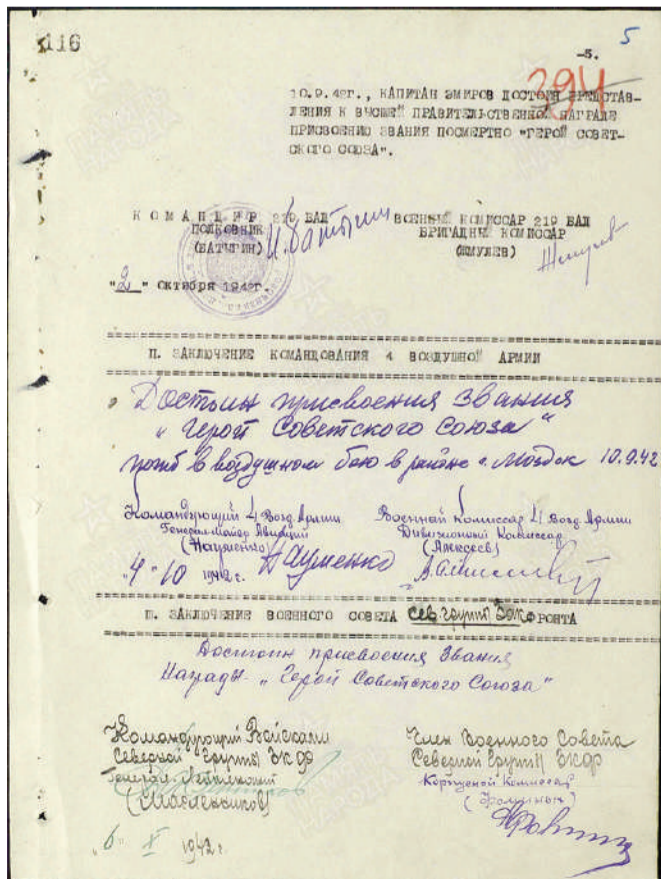 116
5
-5.
294
10.9.42г., КАПИТАН ЭМИРОВ ДОСТОИН ПРЕДСТАВ-
ЛЕНИЯ К ВЫСШЕЙ ПРАВИТЕЛЬСТВЕННОЙ НАГРАДЕ
ПРИСВОЕНИЮ ЗВАНИЯ ПОСМЕРТНО "ГЕРОЙ СОВЕТ-
СКОГО СОЮЗА".
КОМАНДИР 219 БАД
ПОЛКОВНИК
(БАТЫГИН) И.Батыгин
ВОЕННЫЙ КОМИССАР 219 БАД
БРИГАДНЫЙ КОМИССАР
(ЖМУЛЕВ) Жмулев
"2" октября 1942г.
П. ЗАКЛЮЧЕНИЕ КОМАНДОВАНИЯ 4 ВОЗДУШНОЙ АРМИИ
Достоин присвоения звания
"Герой Советского Союза"
погиб в воздушном бою в районе г. Моздок 10.9.42
Командующий 4 Возд. Армии
Генерал-майор Авиации
(Науменко) Науменко
"4" 10 1942г.
Военный Комиссар 4 Возд. Армии
Дивизионный Комиссар
(Алексеев)
Ш. ЗАКЛЮЧЕНИЕ ВОЕННОГО СОВЕТА Сев. группы ЗК ФРОНТА
Достоин присвоения звания
Награды "Герой Советского Союза"
Командующий Войсками
Северной Группы ЗКФ
Генерал-Лейтенант
(Масленников)
"6" X 1942г.
Член Военного Совета
Северной Группы ЗКФ
Корпусной Комиссар